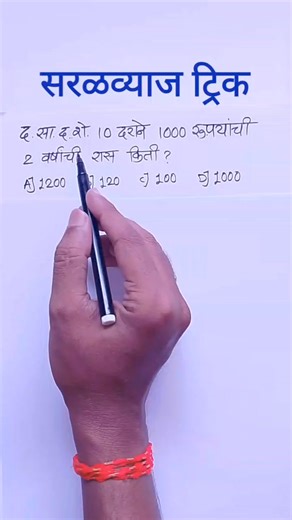 सरळव्याज ट्रिक
द.सा.द.शे. 10 दराने 1000 रूपयांची
2 वर्षाची रास किती ?
A] 1200 B] 120 C] 100 D] 1000